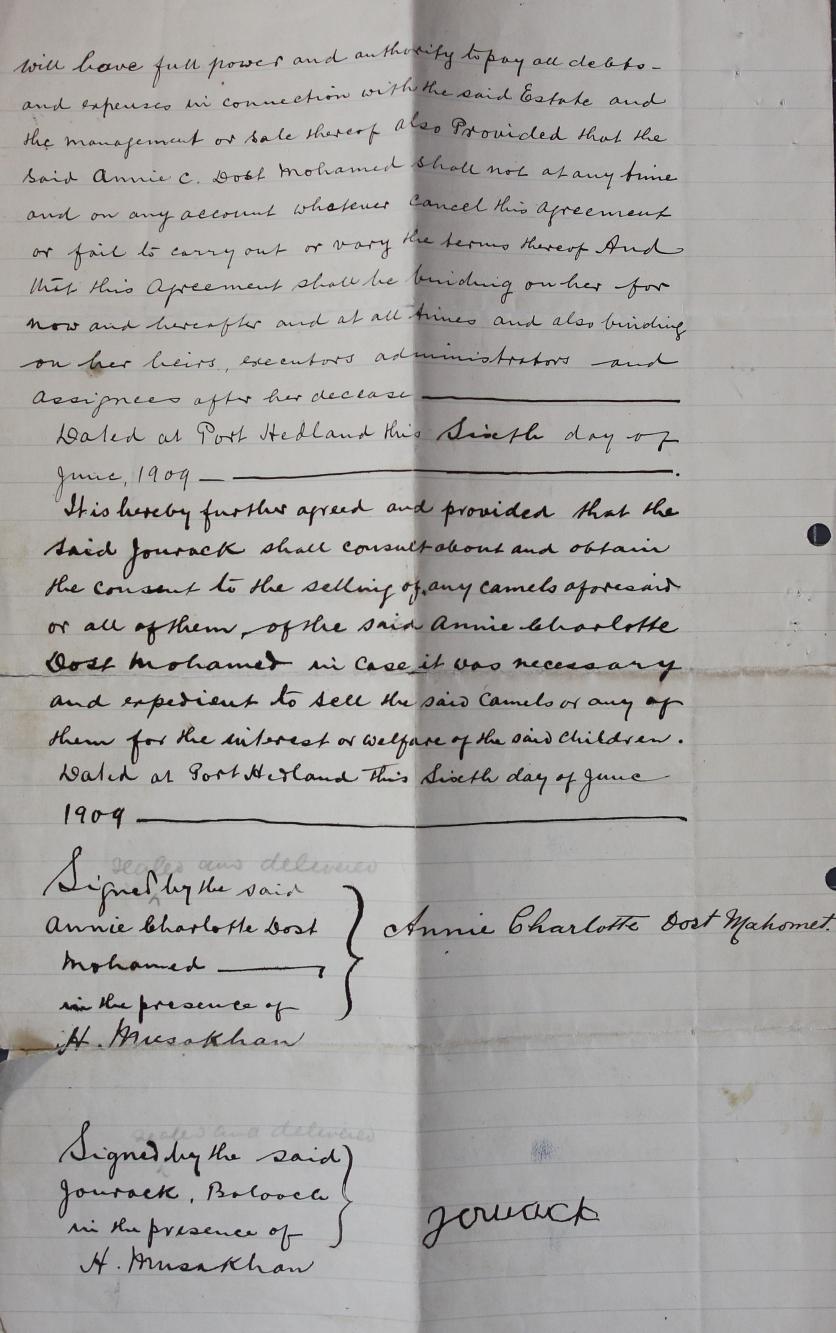 will have full power and authority to pay all debts -
and expenses in connection with the said Estate and
the management or sale thereof also Provided that the
said Annie C. Dost Mohamed shall not at any time
and on any account whatever cancel this agreement
or fail to carry out or vary the terms thereof And
that this Agreement shall be binding on her for
now and hereafter and at all times and also binding
on her heirs, executors administrators and
assignees after her decease
Dated at Port Hedland this Sixth day of
June, 1909.
It is hereby further agreed and provided that the
said Jourack shall consult about and obtain
the consent to the selling of any camels aforesaid
or all of them, of the said Annie Charlotte
Dost Mohamed in case it was necessary
and expedient to sell the said Camels or any of
them for the interest or welfare of the said children.
Dated at Port Hedland this Sixth day of June
1909
sealed and delivered
Signed ^ by the said
Annie Charlotte Dost
Mohamed
in the presence of
H. Musakhan
Annie Charlotte Dost Mahomet.
sealed and delivered
Signed ^ by the said
Jourack, Balooch
in the presence of
H. Musakhan
Jourack